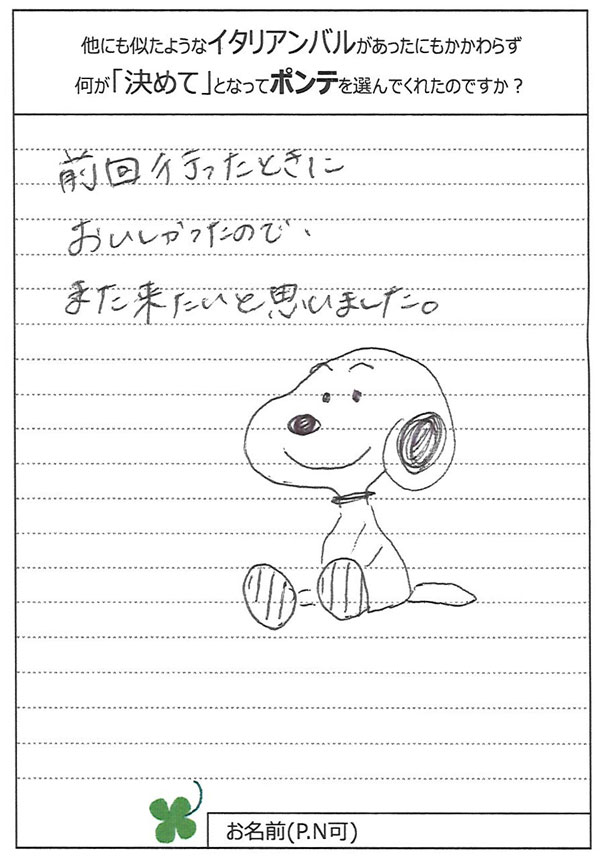 他にも似たようなイタリアンバルがあったにもかかわらず
何が「決めて」となってポンテを選んでくれたのですか？
前回行ったときに
おいしかったので、
また来たいと思いました。
お名前(P.N可)